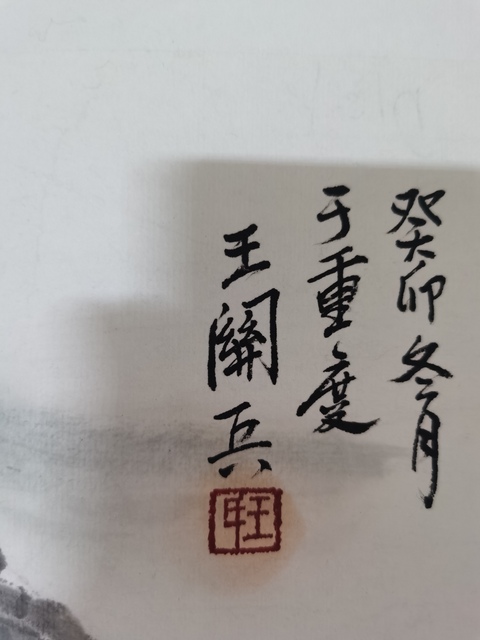 癸卯冬月
于重慶
王關兵